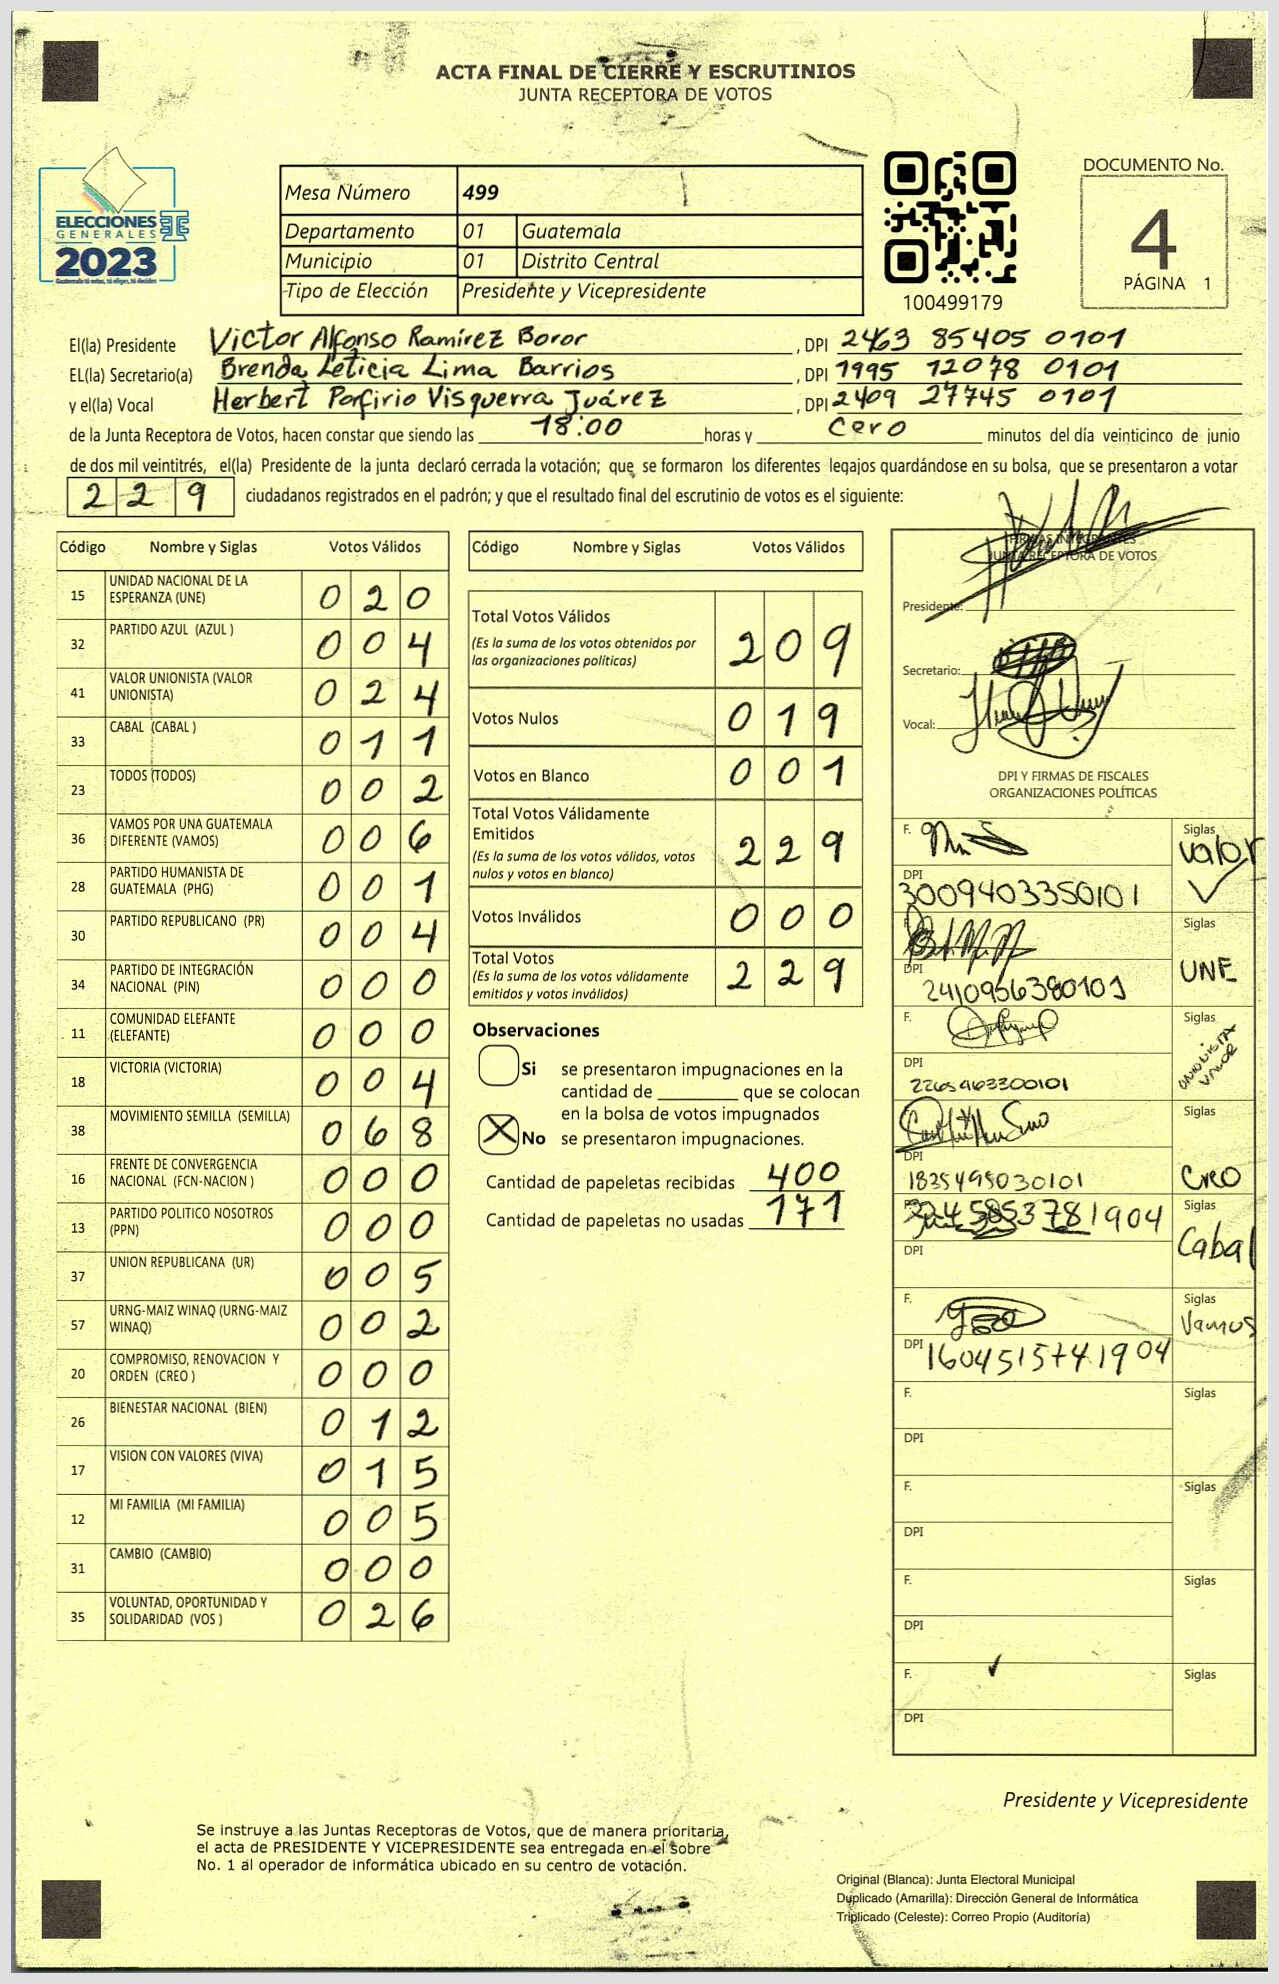 ACTA FINAL DE CIERRE Y ESCRUTINIOS
JUNTA RECEPTORA DE VOTOS
ELECCIONES
GENERALES
2023
Guatemala tú votas, tú eliges, tú decides
Mesa Número 499
Departamento 01 Guatemala
Municipio 01 Distrito Central
Tipo de Elección Presidente y Vicepresidente
100499179
DOCUMENTO No.
4
PÁGINA 1
El(la) Presidente Victor Alfonso Ramírez Boror, DPI 2463 85405 0101
EL(la) Secretario(a) Brenda Leticia Lima Barrios, DPI 1995 12078 0101
y el(la) Vocal Herbert Porfirio Visquerra Juárez, DPI 2409 27745 0101
de la Junta Receptora de Votos, hacen constar que siendo las 18:00 horas y cero minutos del día veinticinco de junio
de dos mil veintitrés, el(la) Presidente de la junta declaró cerrada la votación; que se formaron los diferentes legajos guardándose en su bolsa, que se presentaron a votar
229 ciudadanos registrados en el padrón; y que el resultado final del escrutinio de votos es el siguiente:
Código Nombre y Siglas Votos Válidos
15 UNIDAD NACIONAL DE LA ESPERANZA (UNE) 020
32 PARTIDO AZUL (AZUL ) 004
41 VALOR UNIONISTA (VALOR UNIONISTA) 024
33 CABAL (CABAL ) 011
23 TODOS (TODOS) 002
36 VAMOS POR UNA GUATEMALA DIFERENTE (VAMOS) 006
28 PARTIDO HUMANISTA DE GUATEMALA (PHG) 001
30 PARTIDO REPUBLICANO (PR) 004
34 PARTIDO DE INTEGRACIÓN NACIONAL (PIN) 000
11 COMUNIDAD ELEFANTE (ELEFANTE) 000
18 VICTORIA (VICTORIA) 004
38 MOVIMIENTO SEMILLA (SEMILLA) 068
16 FRENTE DE CONVERGENCIA NACIONAL (FCN-NACION ) 000
13 PARTIDO POLITICO NOSOTROS (PPN) 000
37 UNION REPUBLICANA (UR) 005
57 URNG-MAIZ WINAQ (URNG-MAIZ WINAQ) 002
20 COMPROMISO, RENOVACION Y ORDEN (CREO ) 000
26 BIENESTAR NACIONAL (BIEN) 012
17 VISION CON VALORES (VIVA) 015
12 MI FAMILIA (MI FAMILIA) 005
31 CAMBIO (CAMBIO) 000
35 VOLUNTAD, OPORTUNIDAD Y SOLIDARIDAD (VOS ) 026
Código Nombre y Siglas Votos Válidos
Total Votos Válidos 209
(Es la suma de los votos obtenidos por
las organizaciones políticas)
Votos Nulos 019
Votos en Blanco 001
Total Votos Válidamente
Emitidos 229
(Es la suma de los votos válidos, votos
nulos y votos en blanco)
Votos Inválidos 000
Total Votos 229
(Es la suma de los votos válidamente
emitidos y votos inválidos)
Observaciones
Si se presentaron impugnaciones en la
cantidad de ________ que se colocan
en la bolsa de votos impugnados
X No se presentaron impugnaciones.
Cantidad de papeletas recibidas 400
Cantidad de papeletas no usadas 171
FIRMAS INTEGRANTES
JUNTA RECEPTORA DE VOTOS
Presidente:
Secretario:
Vocal:
DPI Y FIRMAS DE FISCALES
ORGANIZACIONES POLÍTICAS
F. Siglas valor
DPI 3009403350101
F. Siglas UNE
DPI 2410956380101
F. Siglas UNIONISTA VALOR
DPI 2265463300101
F. Siglas Creo
DPI 1835495030101
F. Siglas Cabal
DPI
F. Siglas Vamos
DPI 1604515741904
F. Siglas
DPI
F. Siglas
DPI
F. Siglas
DPI
F. Siglas
DPI
Presidente y Vicepresidente
Se instruye a las Juntas Receptoras de Votos, que de manera prioritaria,
el acta de PRESIDENTE Y VICEPRESIDENTE sea entregada en el Sobre
No. 1 al operador de informática ubicado en su centro de votación.
Original (Blanca): Junta Electoral Municipal
Duplicado (Amarilla): Dirección General de Informática
Triplicado (Celeste): Correo Propio (Auditoría)